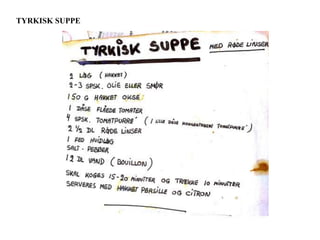 TYRKISK SUPPE
TYRKISK SUPPE MED RØDE LINSER
2 LØG (HAKKET)
2-3 SPSK. OLIE ELLER SMØR
150 G HAKKET OKSE
1 DÅSE FLÅEDE TOMATER
4 SPSK. TOMATPURRE' (1 LILLE DÅSE KONCENTRERET TOMATPURRE')
2 ½ DL RØDE LINSER
1 FED HVIDLØG
SALT - PEBBER
12 DL VAND (BOUILLON)
SKAL KOGES 15-20 MINUTTER OG TRÆKKE 10 MINUTTER
SERVERES MED HAKKET PERSILLE OG CITRON